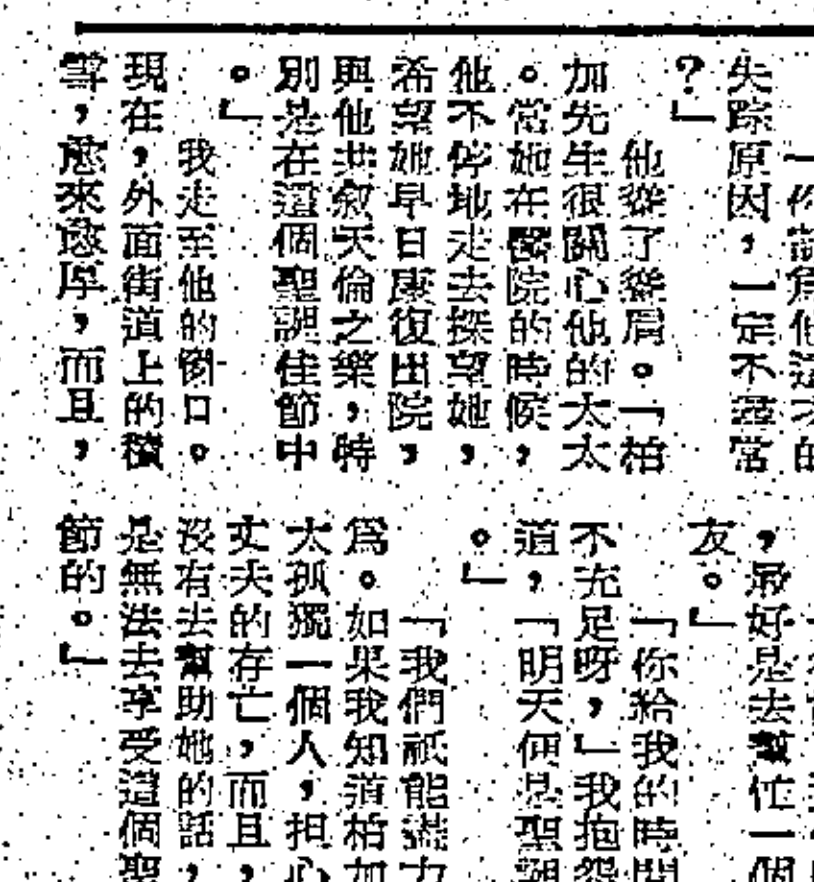 失踪原因，一定不尋常
？」
他皺了皺眉。「柏
加先生很關心他的太太
。當她在醫院的時候，
他不停地走去探望她，
希望她早日康復出院，
與他共叙天倫之樂，特
別是在這個聖誕佳節中
。」
我走至他的窗口。
現在，外面街道上的積
雪，愈來愈厚，而且，
，最好是去幫忙一個
友。」
「你給我的時間
不充足呀，」我抱怨
道，「明天便是聖誕
。」
「我們祇能盡力
爲。如果我知道柏加
太孤獨一個人，担心
丈夫的存亡，而且，
沒有去幫助她的話，
是無法去享受這個聖
節的。」